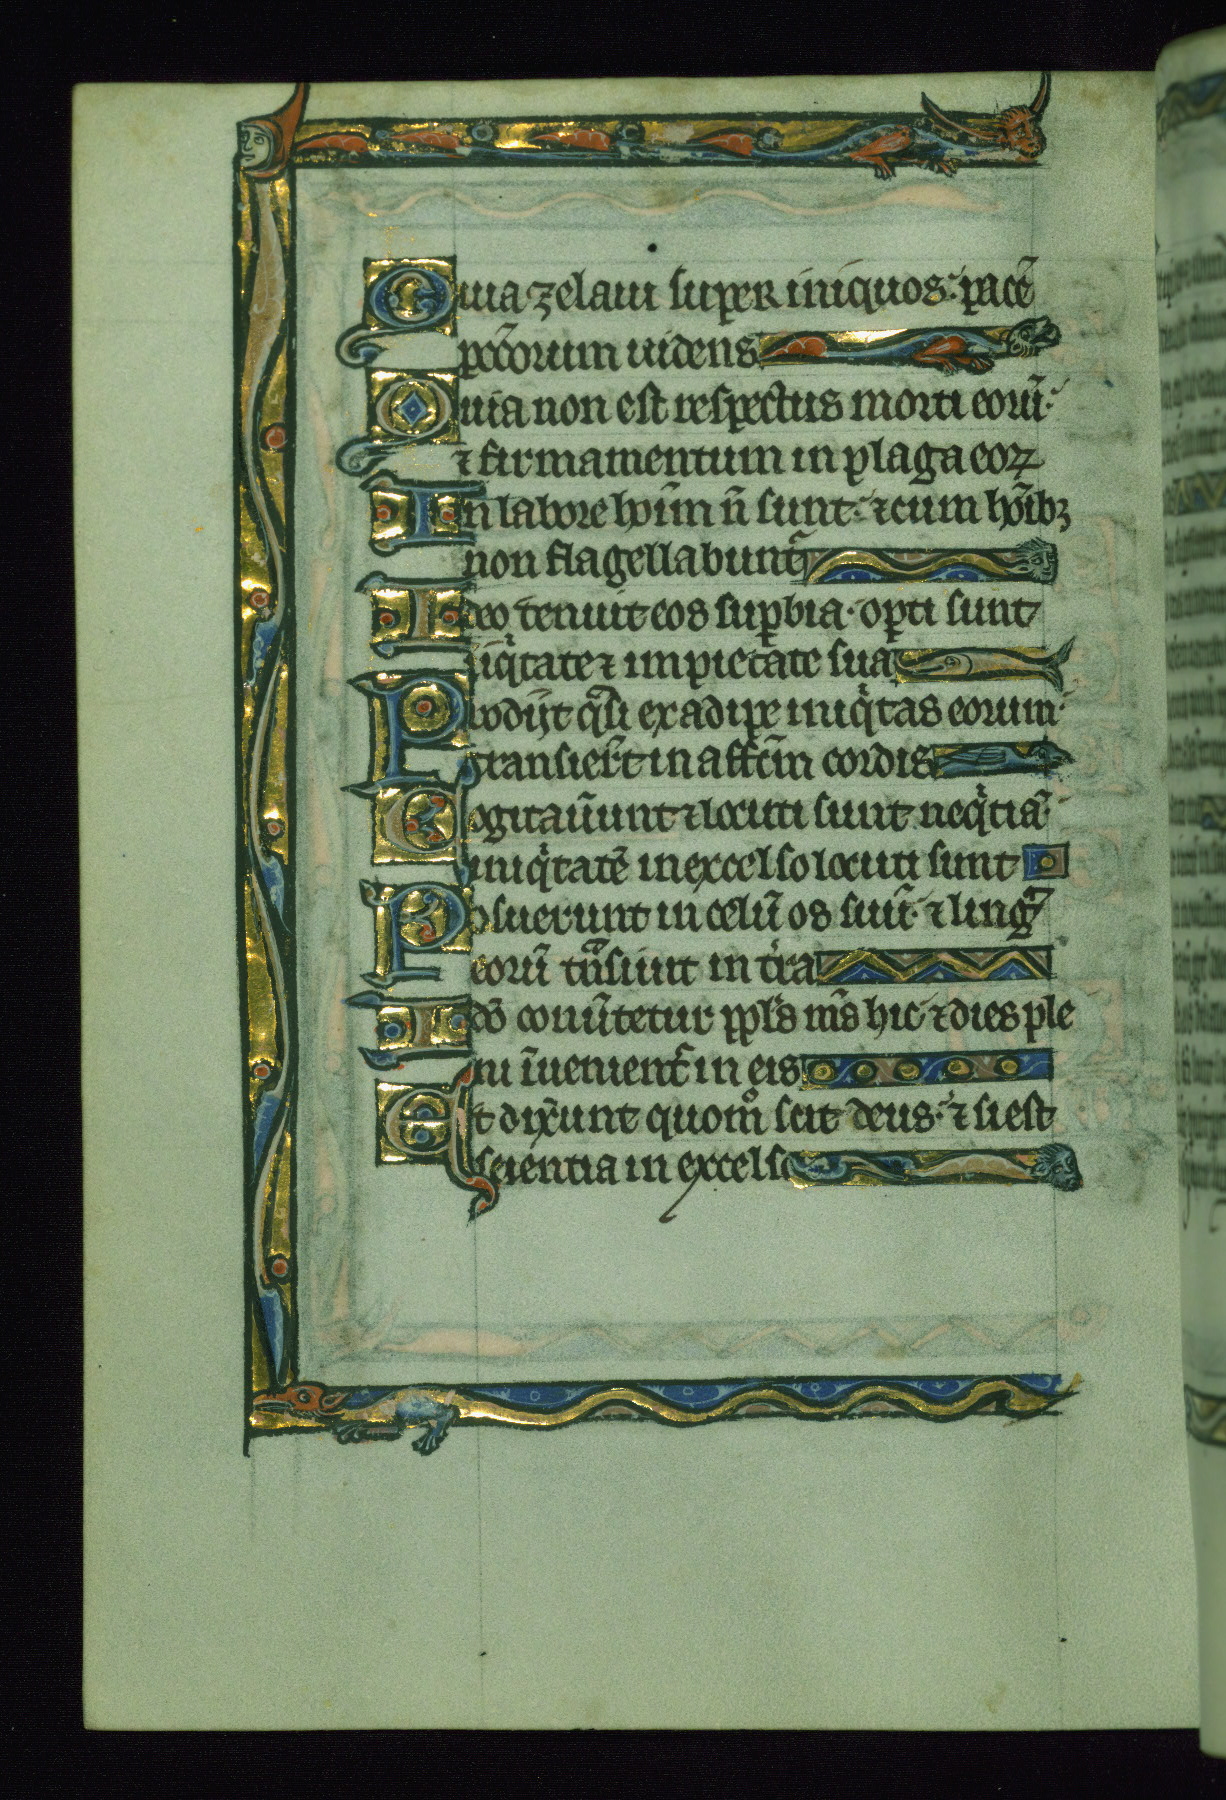 Quia zelaui super iniquos: pacē
pccōrum uidens
Quia non est respectus morti eorū:
⁊ firmamentum in plaga eoꝝ
In labore hoīm n̄ sunt: ⁊ cum hoībꝫ
non flagellabunt᷑
Ideo tenuit eos suꝑbia· oꝑti sunt
iiqͥtate ⁊ impietate sua
Prodijt qͣsi ex adipe iniqͥtas eorum·
transierūt in affcm̄ cordis
Cogitauūnt ⁊ locuti sunt neqͥtiā·
iniqͥtatē in excelso locuti sunt
Posuerunt in celū os suū· ⁊ lingͣ
eorū tͣnsiuit in tr̄a
Ido conuūtetur ppl's ms̄ hic· ⁊ dies ple
ni īuenient᷑ in eis
Et dixūnt quomͦ scit deus: ⁊ si est
scientia in excelso